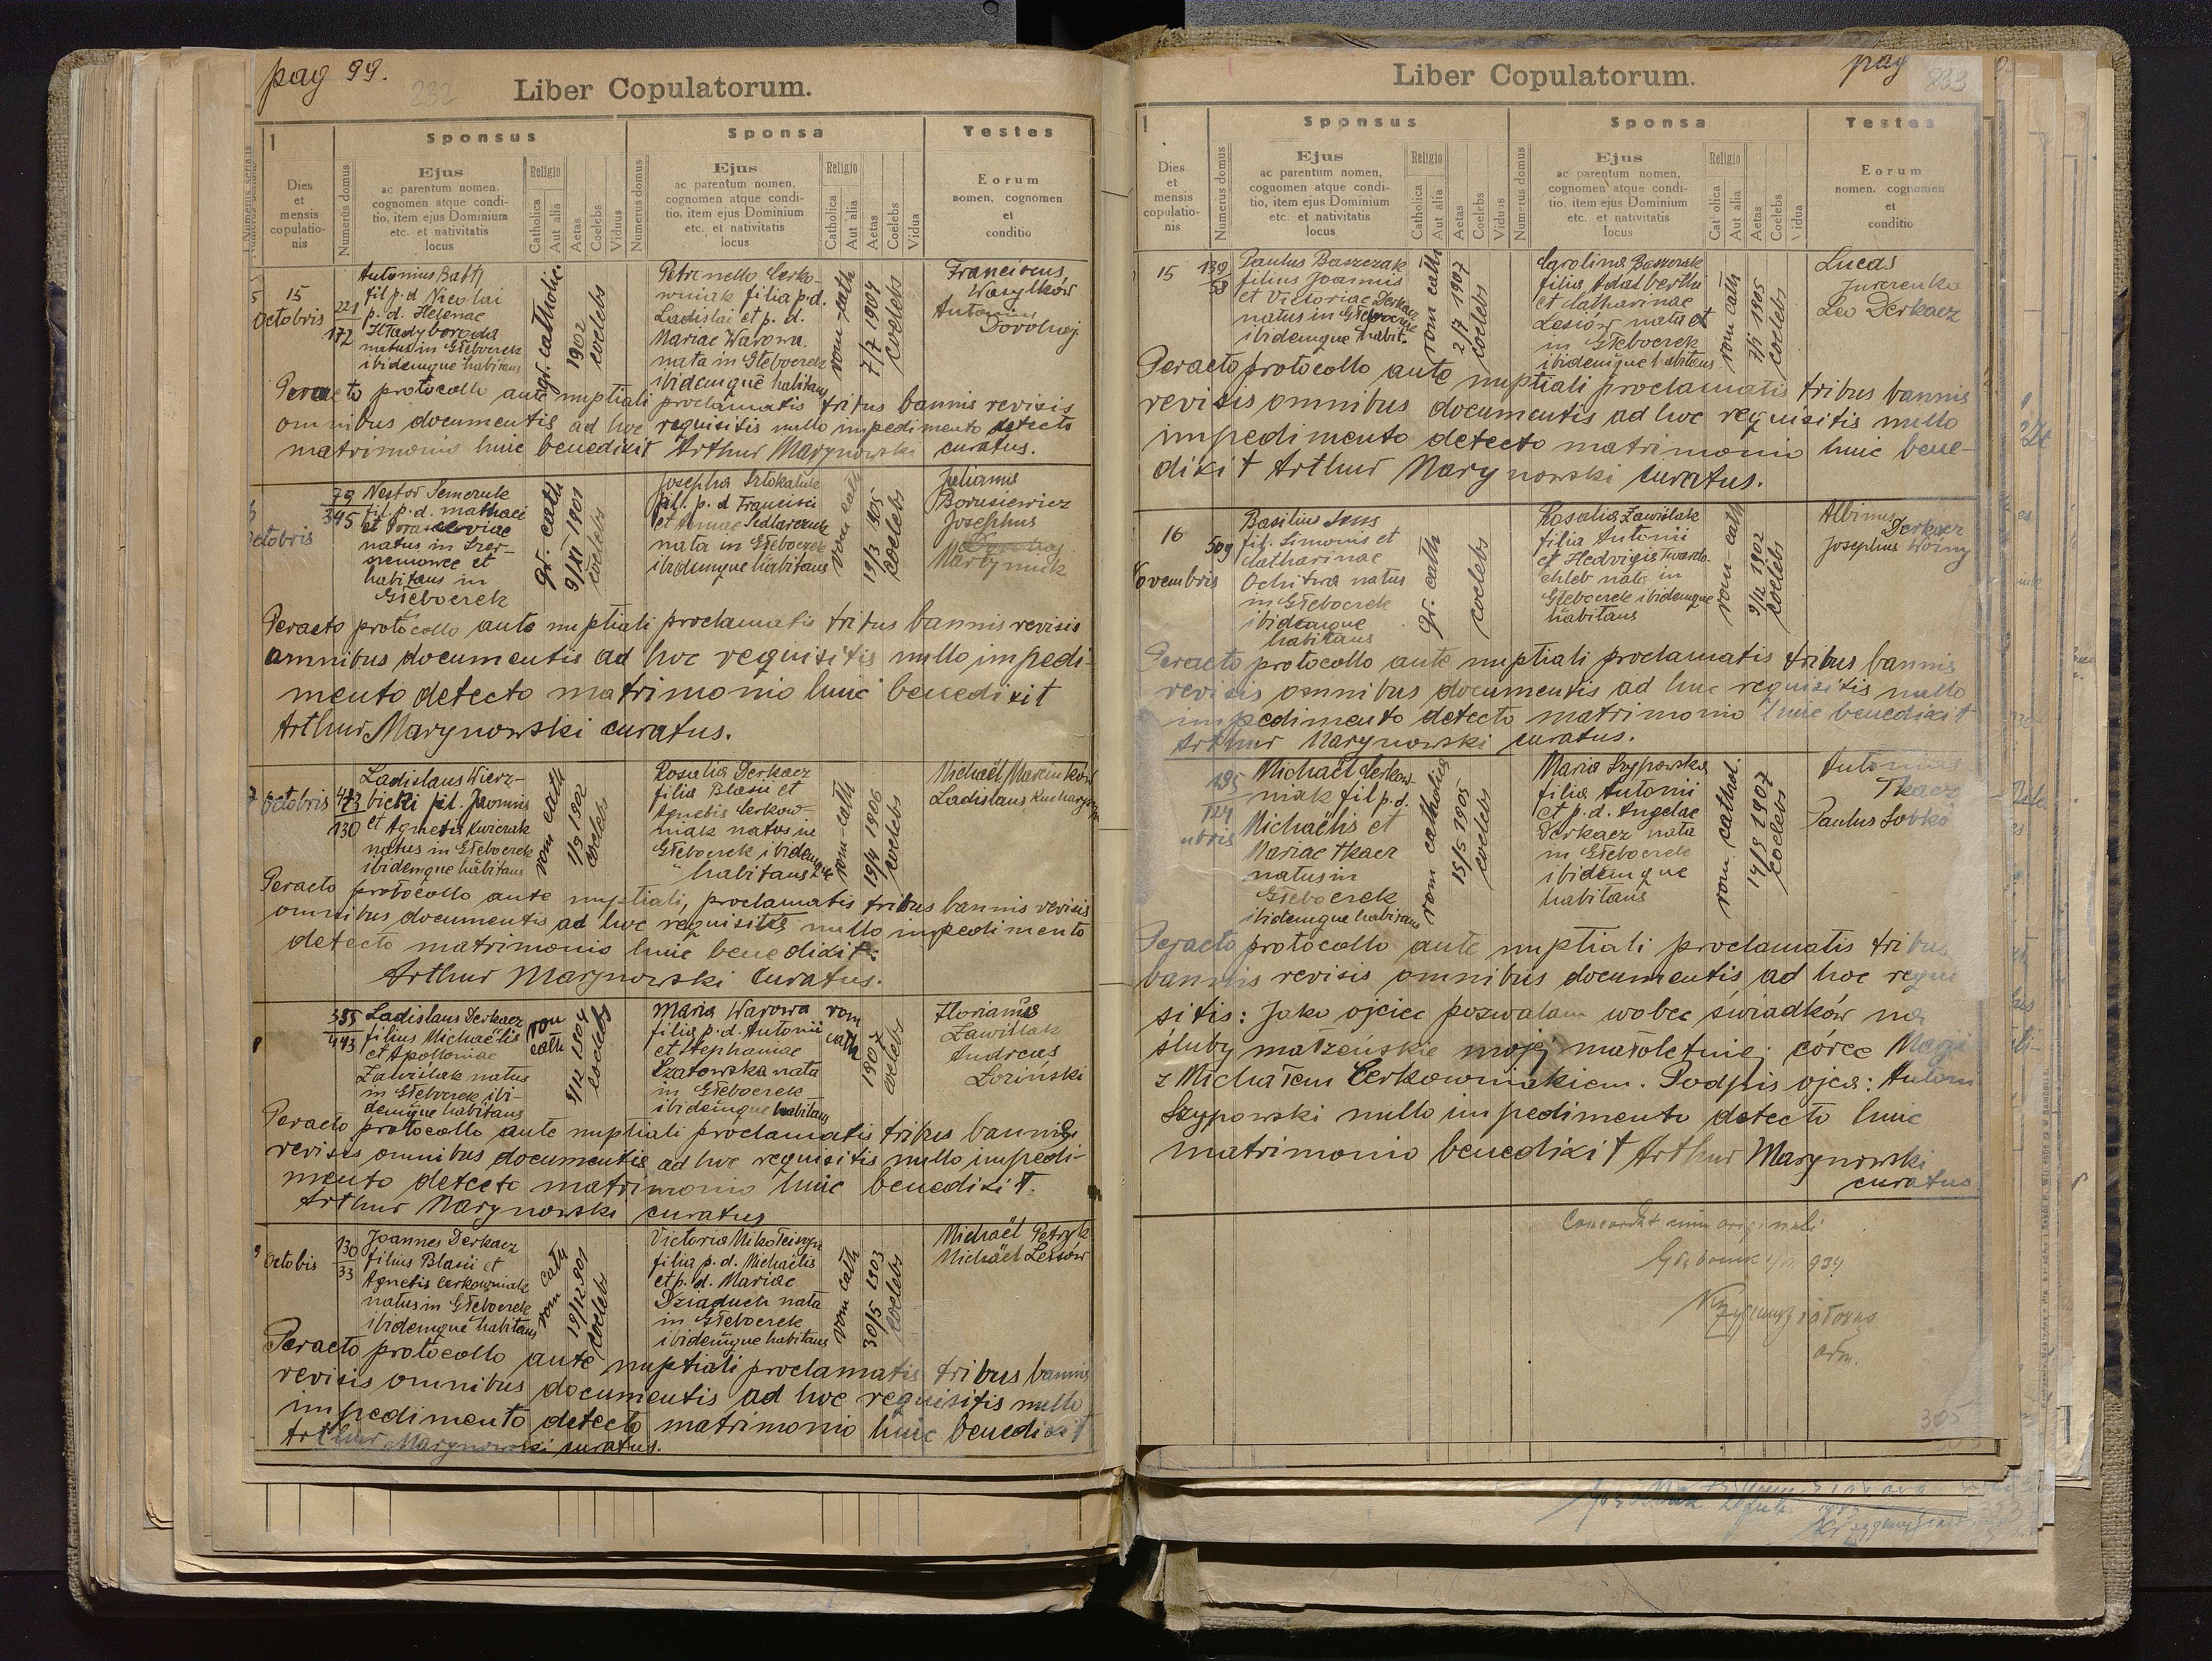 pag 99.
232
Liber Copulatorum.
Dies et mensis copulationis
Numerus domus
Sponsus
Ejus
ac parentum nomen,
cognomen atque condi-
tio, item ejus Dominium
etc. et nativitatis
locus
Religio
Catholica
Aut alia
Aetas
Coelebs
Viduus
Numerus domus
Sponsa
Ejus
ac parentum nomen,
cognomen atque condi-
tio, item ejus Dominium
etc. et nativitatis
locus
Religio
Catholica
Aut alia
Aetas
Coelebs
Vidua
Testes
Eorum
nomen, cognomen
et
conditio
15
Octobris
221
172
Antonius
fil p.d Nicolai
p. d. Helenae
Hładyboroda
natus in Głeboczek
ibidemque habitans
gr. catholic.
1902
coelebs
Petrinella Cerko-
wniak filia p.d.
Ladislai et p. d.
Mariae Warowa
nata in Głeboczek
ibidemque habitans
rom-cath
7/7 1904
coelebs
Franciscus
Wasylków
Antonius
Dovohaj
Peracto protocollo ante nuptiali proclamatis tribus bannis revisis
omnibus documentis ad hoc requisitis nullo impedimento detecto
matrimonio huic benedixit Arthur Marynowski curatus.
octobris
79
345
Nestor Semeruk
fil. p.d. mathaei
et Parasceviae
natus in
et
habitans in
Głeboczek
gr. cath
9/XI 1901
coelebs
Josepha
fil. p. d Francisci
et Annae Sedlarczuk
nata in Głeboczek
ibidemque habitans
rom cath
19/3 905
coelebs
Julianus
Borusiewicz
Josephus
Martyniuk
Peracto protocollo ante nuptiali proclamatis tribus bannis revisis
omnibus documentis ad hoc requisitis nullo impedi-
mento detecto matrimonio huic benedixit
Arthur Marynowski curatus.
7 octobris
473
130
Ladislaus Wierz-
bicki fil. Joannis
et Agnetis Kwiczak
natus in Głeboczek
ibidemque habitans
rom cath
1/9 1902
coelebs
Rosalia Derkacz
filia Blasii et
Agnetis Cerkow-
niak natus in
Głeboczek ibidemque
habitans
rom-cath
19/4 1906
coelebs
Michaël Marcinków
Ladislaus
Peracto protocollo ante nuptiali, proclamatis tribus bannis revisis
omnibus documentis ad hoc requisitis nullo impedimento
detecto matrimonio huic benedixit:
Arthur Marynowski curatus.
8
355
443
Ladislaus Derkacz
filius Michaëlis
et Apolloniae
Zawiślak natus
in Głeboczek ibi-
demque habitans
rom cath
1904
coelebs
Maria Warowa
filia p.d. Antonii
et Stephaniae
Szatowska nata
in Głeboczek
ibidemque habitans
rom cath
1907
coelebs
Florianus
Zawiślak
Andreas
Łoziński
Peracto protocollo ante nuptiali proclamatis tribus bannis
revisis omnibus documentis ad hoc requisitis nullo impedi-
mento detecto matrimonio huic benedixit.
Arthur Marynowski curatus
9
octobis
130
33
Joannes Derkacz
filius Blasii et
Agnetis Cerkowniak
natus in Głeboczek
ibidemque habitans
rom cath
19/12 901
coelebs
Victoria
filia p.d. Michaëlis
et p. d. Mariae
Dziaduch nata
in Głeboczek
ibidemque habitans
rom cath
30/5 1903
coelebs
Michaël Petryk
Michaël Lesów
Peracto protocollo ante nuptiali proclamatis tribus bannis
revisis omnibus documentis ad hoc requisitis nullo
impedimento detecto matrimonio huic benedixit
Arthur Marynowski curatus.
pag
233
Liber Copulatorum.
Dies
et
mensis
copulatio-
nis
Numerus domus
Sponsus
Ejus
ac parentum nomen,
cognomen atque condi-
tio, item ejus Dominium
etc. et nativitatis
locus
Religio
Catholica
Aut alia
Aetas
Coelebs
Viduus
Numerus domus
Sponsa
Ejus
ac parentum nomen,
cognomen atque condi-
tio, item ejus Dominium
etc. et nativitatis
locus
Religio
Catholica
Aut alia
Aetas
Coelebs
Vidua
Testes
Eorum
nomen, cognomen
et
conditio
15
139
58
Paulus Baszczak
filius Joannis
et Victoriae Derkacz
natus in Głeboczek
ibidemque habit.
rom cath
2/7 1907
coelebs
Carolina
filia Adalberthi
et Catharinae
Lesiów nata et
in Głeboczek
ibidemque habitans
rom cath
7/1 1905
coelebs
Lucas
Jurczenko
Leo Derkacz
Peracto protocollo ante nuptiali proclamatis tribus bannis
revisis omnibus documentis ad hoc requisitis nullo
impedimento detecto matrimonio huic bene-
dixit Arthur Marynowski curatus.
16
ovembris
509
Basilius
fil. Simonis et
Catharinae
Ochitwa natus
in Głeboczek
ibidemque
habitans
gr. cath
coelebs
Rosalia Zawiślak
filia Antonii
et Hedvigis Twardo-
chleb nata in
Głeboczek ibidemque
habitans
rom cath
9/12 1902
coelebs
Albinus
Derkacz
Josephus Woźny
Peracto protocollo ante nuptiali proclamatis tribus bannis
revisis omnibus documentis ad huc requisitis nullo
impedimento detecto matrimonio huic benedixit
Arthur Marynowski curatus.
195
124
mbris
Michaël Cerkow-
niak fil p.d.
Michaëlis et
Mariae Tkacz
natus in
Głeboczek
ibidemque habitans
rom catholica
15/5 1905
coelebs
Maria Szypowska
filia Antonii
et p.d. Angelae
Derkacz nata
in Głeboczek
ibidemque
habitans
rom. cathol.
14/8 1907
coelebs
Antonius
Tkacz
Paulus Sobko
Peracto protocollo ante nuptiali proclamatis tribus
bannis revisis omnibus documentis ad hoc requi
sitis: Jako ojciec pozwalam wobec świadków na
śluby małżeńskie mojej małoletniej córce Marji
z Michałem Cerkowniakiem. Podpis ojca: Antoni
Szypowski nullo impedimento detecto huic
matrimonio benedixit Arthur Marynowski
curatus
Concordat cum originali
934
adm.
305